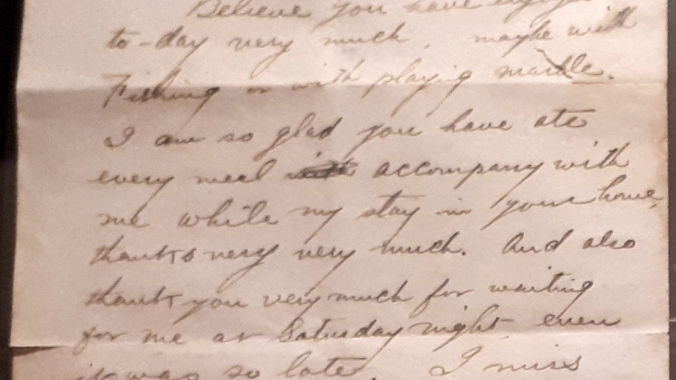 Believe you have enjoy
to-day very much, maybe with
Fishing or with playig marble.
I am so glad you have ate
every meal accompany with
me while my stay in your home,
thanks very very much. And also
thank you very much for waiting
for me at Saturday night even
it was so late. I miss